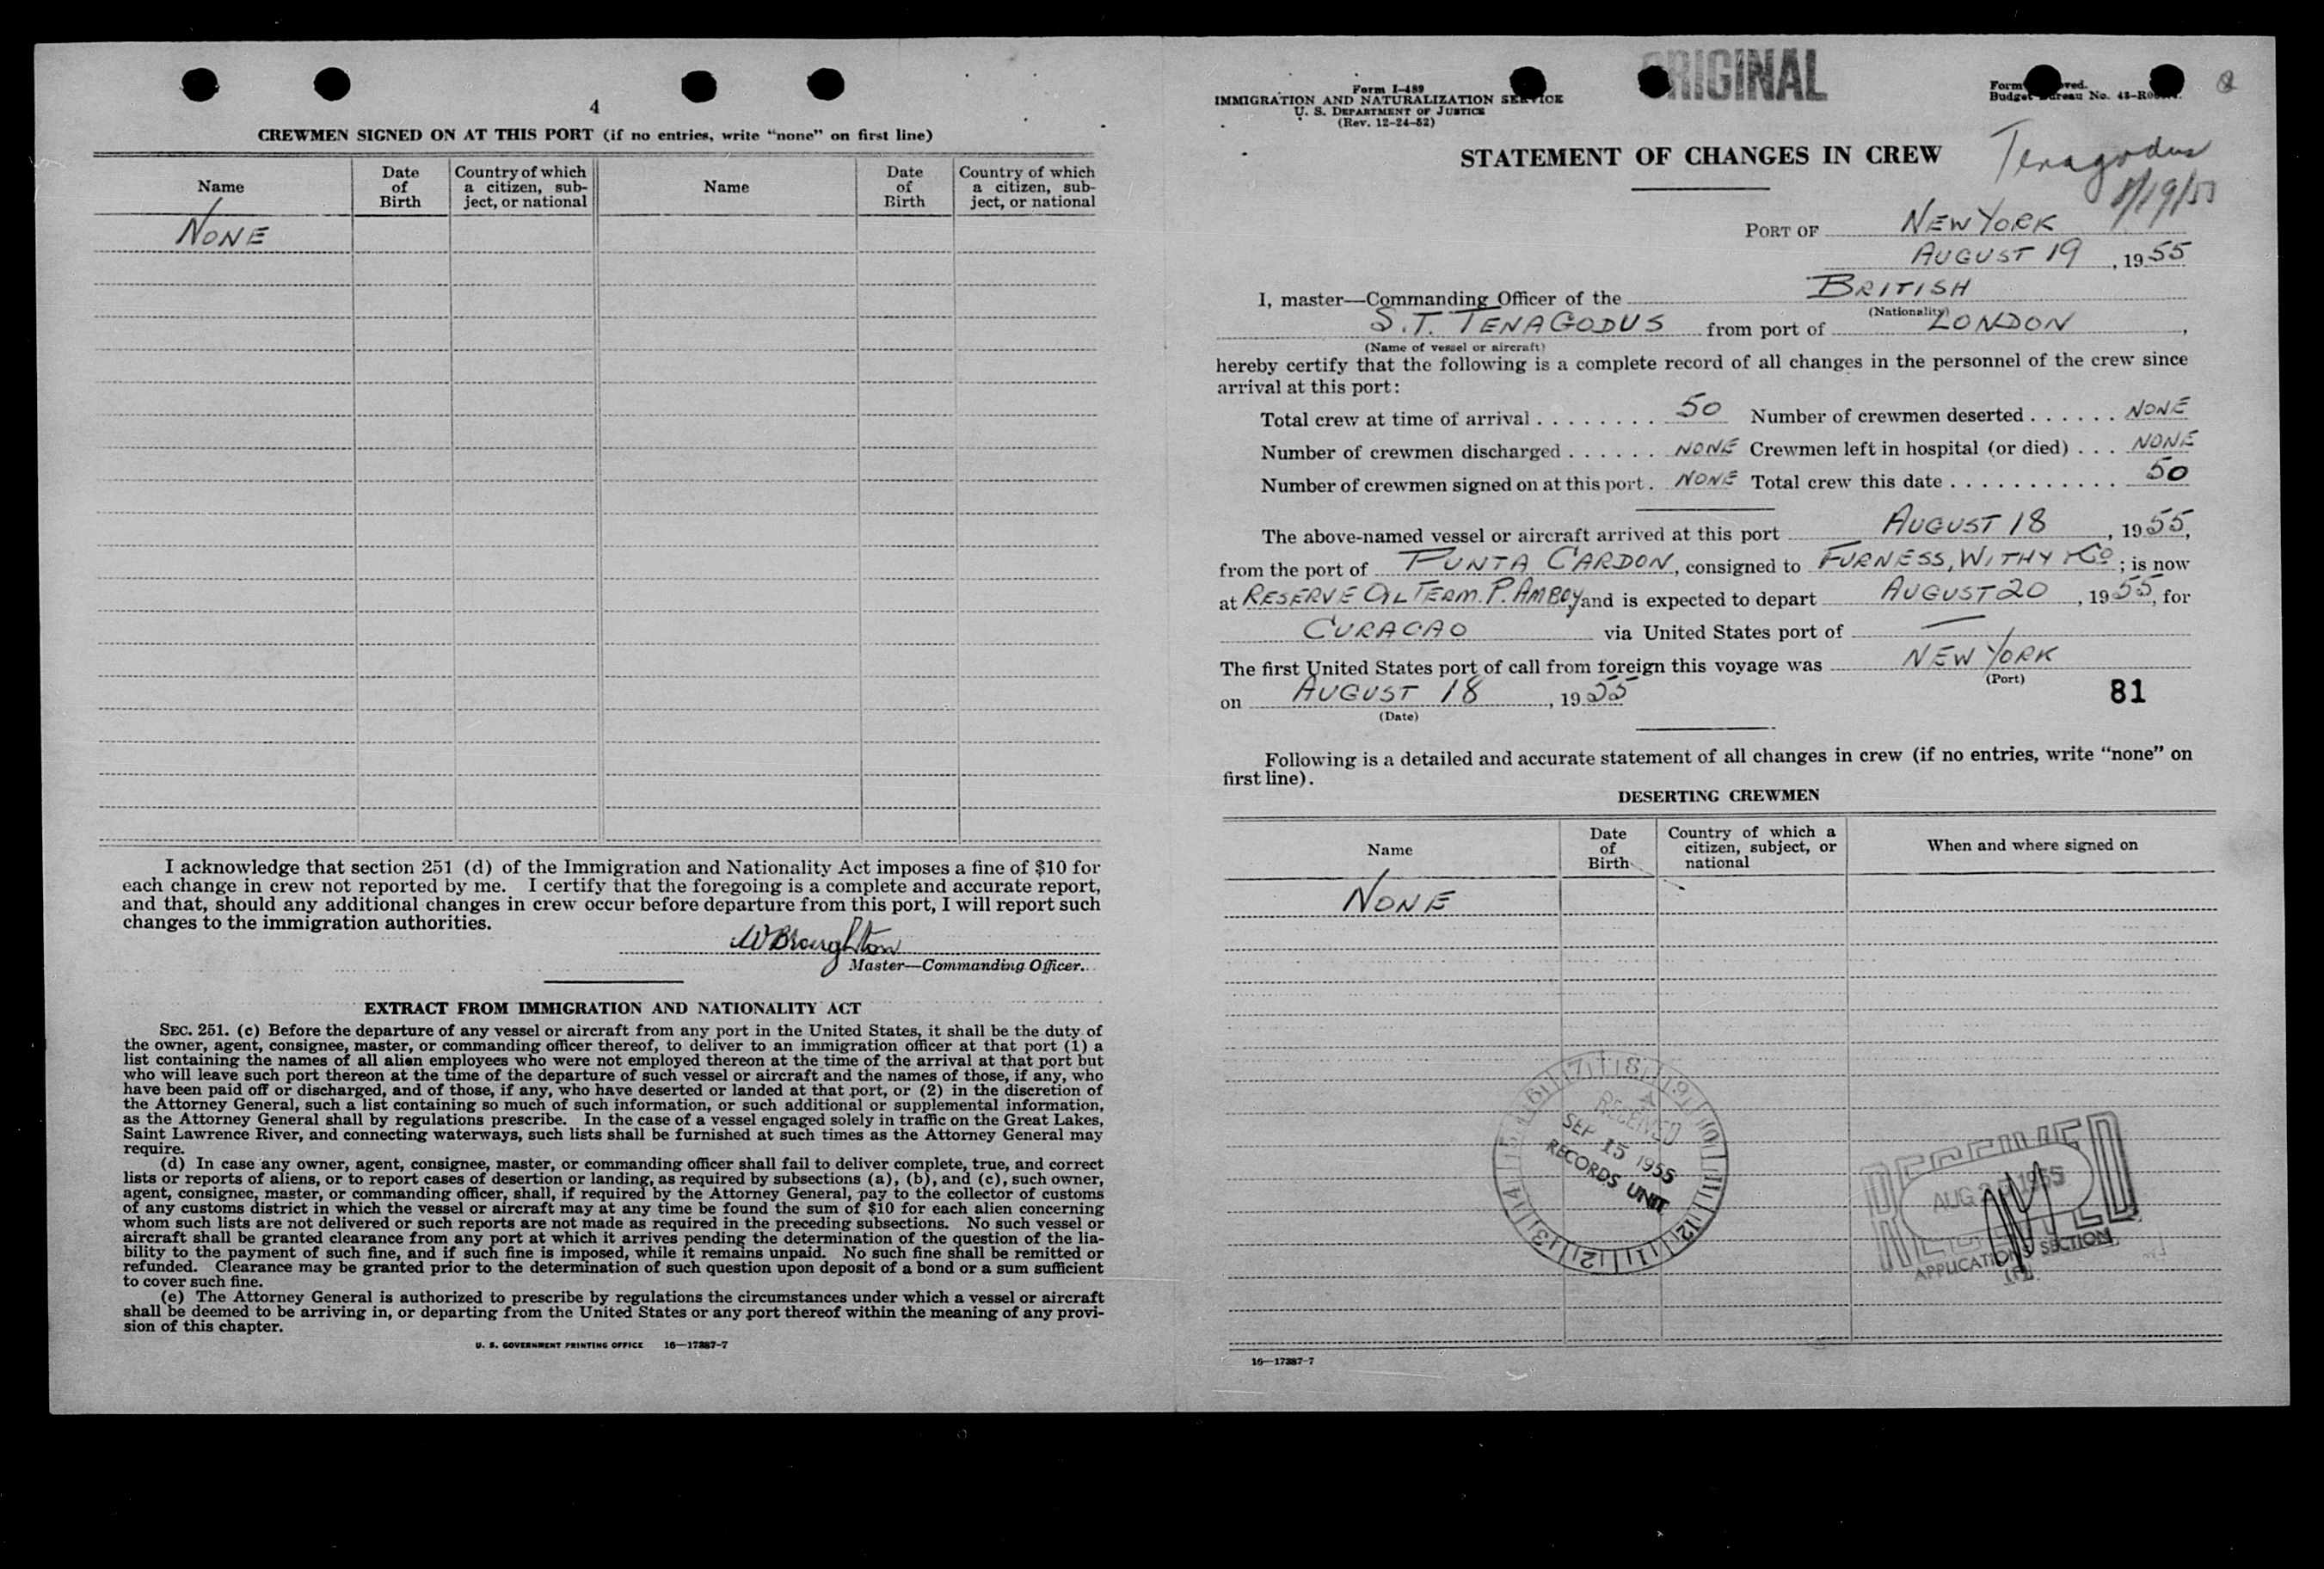 4
CREWMEN SIGNED ON AT THIS PORT (if no entries, write "none" on first line)
Name
Date of Birth
Country of which a citizen, sub-ject, or national
Name
Date of Birth
Country of which a citizen, sub-ject, or national
NONE
I acknowledge that section 251 (d) of the Immigration and Nationality Act imposes a fine of $10 for
each change in crew not reported by me. I certify that the foregoing is a complete and accurate report,
and that, should any additional changes in crew occur before departure from this port, I will report such
changes to the immigration authorities.
W Broughton
Master—Commanding Officer.
EXTRACT FROM IMMIGRATION AND NATIONALITY ACT
SEC. 251. (c) Before the departure of any vessel or aircraft from any port in the United States, it shall be the duty of
the owner, agent, consignee, master, or commanding officer thereof, to deliver to an immigration officer at that port (1) a
list containing the names of all alien employees who were not employed thereon at the time of the arrival at that port but
who will leave such port thereon at the time of the departure of such vessel or aircraft and the names of those, if any, who
have been paid off or discharged, and of those, if any, who have deserted or landed at that port, or (2) in the discretion of
the Attorney General, such a list containing so much of such information, or such additional or supplemental information,
as the Attorney General shall by regulations prescribe. In the case of a vessel engaged solely in traffic on the Great Lakes,
Saint Lawrence River, and connecting waterways, such lists shall be furnished at such times as the Attorney General may
require.
(d) In case any owner, agent, consignee, master, or commanding officer shall fail to deliver complete, true, and correct
lists or reports of aliens, or to report cases of desertion or landing, as required by subsections (a), (b), and (c), such owner,
agent, consignee, master, or commanding officer, shall, if required by the Attorney General, pay to the collector of customs
of any customs district in which the vessel or aircraft may at any time be found the sum of $10 for each alien concerning
whom such lists are not delivered or such reports are not made as required in the preceding subsections. No such vessel or
aircraft shall be granted clearance from any port at which it arrives pending the determination of the question of the lia-
bility to the payment of such fine, and if such fine is imposed, while it remains unpaid. No such fine shall be remitted or
refunded. Clearance may be granted prior to the determination of such question upon deposit of a bond or a sum sufficient
to cover such fine.
(e) The Attorney General is authorized to prescribe by regulations the circumstances under which a vessel or aircraft
shall be deemed to be arriving in, or departing from the United States or any port thereof within the meaning of any provi-
sion of this chapter.
U. S. GOVERNMENT PRINTING OFFICE 16—17387-7
Form I-489
IMMIGRATION AND NATURALIZATION SERVICE
U. S. DEPARTMENT OF JUSTICE
(Rev. 12-24-52)
ORIGINAL
Budget Bureau No.
STATEMENT OF CHANGES IN CREW
Tenagodus
8/19/55
PORT OF NEW YORK
AUGUST 19, 1955
I, master—Commanding Officer of the BRITISH
(Nationality)
S.T. TENAGODUS from port of LONDON,
(Name of vessel or aircraft)
hereby certify that the following is a complete record of all changes in the personnel of the crew since
arrival at this port:
Total crew at time of arrival . . . . . . . . 50 Number of crewmen deserted . . . . . . NONE
Number of crewmen discharged . . . . . . NONE Crewmen left in hospital (or died) . . . NONE
Number of crewmen signed on at this port . NONE Total crew this date . . . . . . . . . . . 50
The above-named vessel or aircraft arrived at this port AUGUST 18, 1955,
from the port of PUNTA CARDON, consigned to FURNESS, WITHY & Co; is now
at RESERVE OIL TERM. P. AMBOY and is expected to depart AUGUST 20, 1955, for
CURACAO via United States port of —
The first United States port of call from foreign this voyage was NEW YORK
(Port)
on AUGUST 18, 1955
(Date)
81
Following is a detailed and accurate statement of all changes in crew (if no entries, write "none" on
first line).
DESERTING CREWMEN
Name
Date of Birth
Country of which a citizen, subject, or national
When and where signed on
NONE
RECEIVED
SEP 15 1955
RECORDS UNIT
RECEIVED
AUG 1955
APPLICATIONS SECTION
16—17387-7